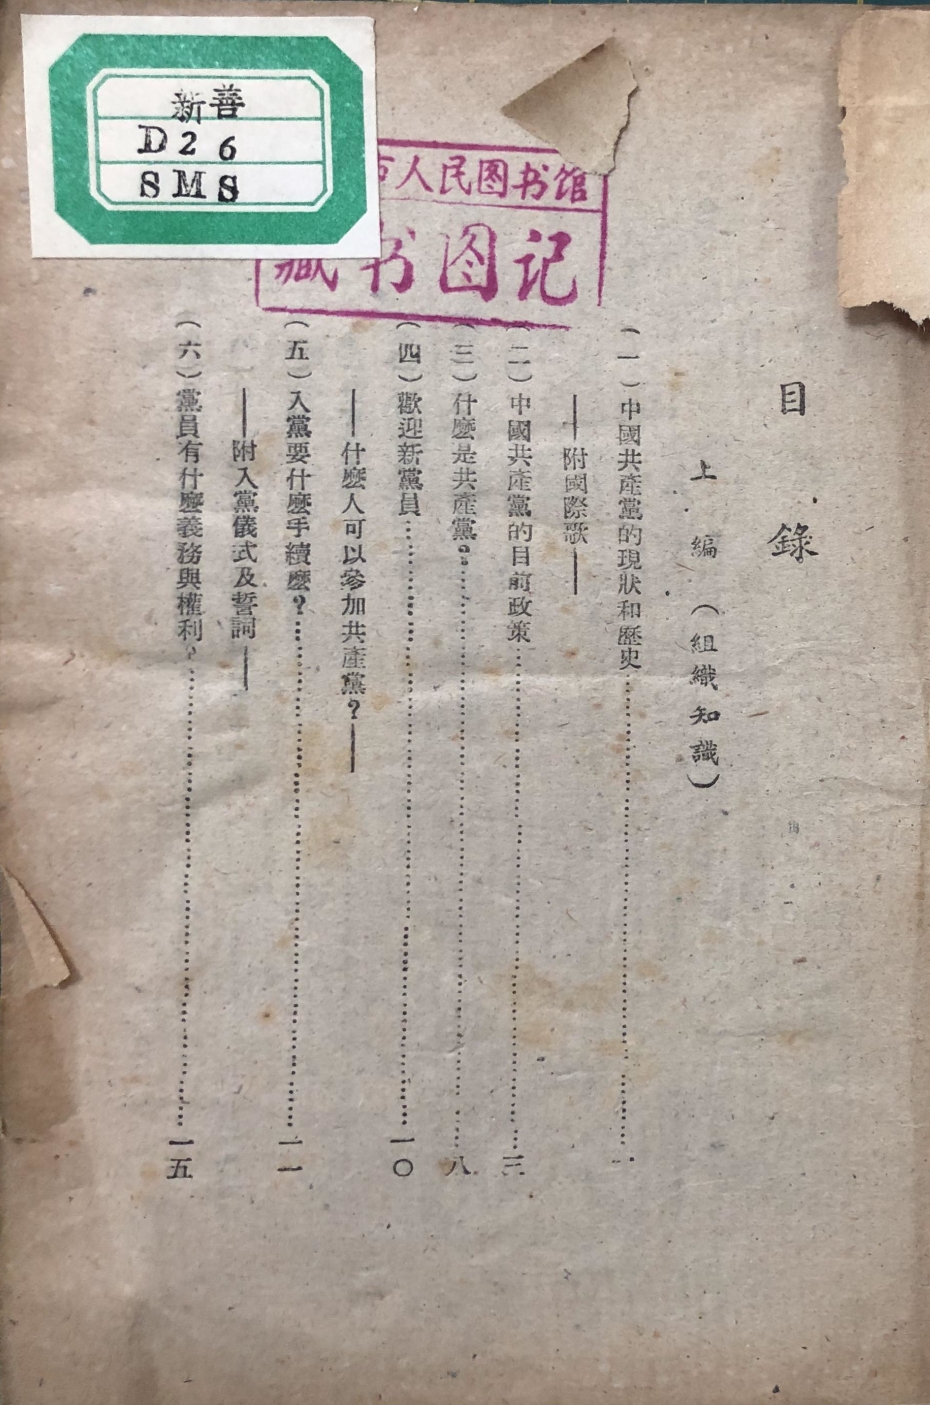 新善
D26
SMS
市人民图书馆
藏书图记
目錄
上編（組織知識）
（一）中國共產黨的現狀和歷史……一
——附國際歌——
（二）中國共產黨的目前政策……三
（三）什麼是共產黨？……八
（四）歡迎新黨員……一〇
——什麼人可以參加共產黨？——
（五）入黨要什麼手續麼？……一一
——附入黨儀式及誓詞——
（六）黨員有什麼義務與權利？……一五